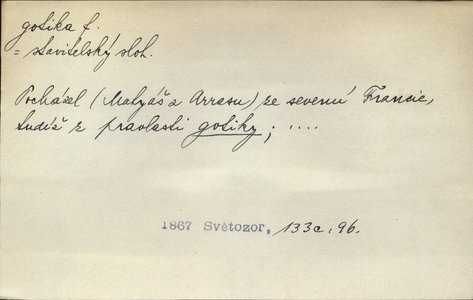 gotika f.
= stavitelský sloh.
Pocházel (Matyáš z Arrasu) ze severní Francie,
tudíž z pravlasti gotiky; ....
1867 Světozor, 133c, 96.